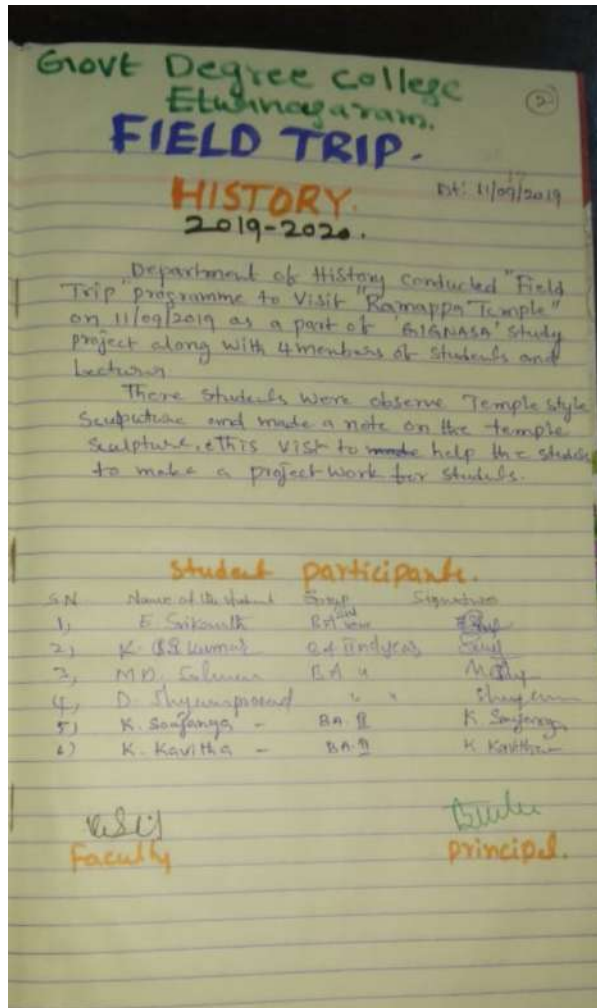 Govt Degree College
Eturnagaram.
②
FIELD TRIP.
HISTORY.
Dt: 11/09/2019
2019-2020.
Department of History conducted "Field
Trip" programme to Visit "Ramappa Temple"
on 11/09/2019 as a part of 'GIGNASA' study
project along with 4 members of students and
Lecturer
There students were observe Temple style
and made a note on the temple
sculpture. This visit to help the
to make a project work for students.
Student participants.
S.N Name of the student Group Signature
1, E. Srikanth BA
2, K. kumar IInd year
3, MD. BA "
4, D. Shyamprasad " "
5) K. Soujanya - BA. II K. Soujanya
6) K. Kavitha - BA. II K Kavitha
Faculty principal.